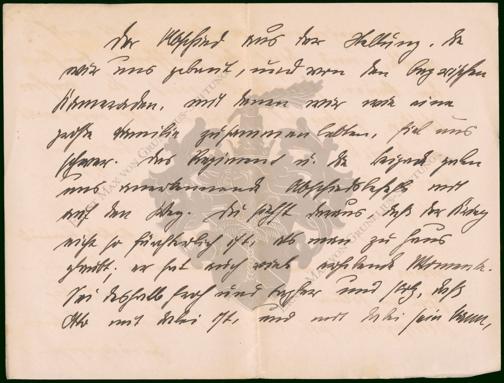 Der Abschied aus der Stellung, die
wir uns gebaut, und von den bayrischen
Kameraden, mit denen wir wie eine
große Familie zusammen lebten, fiel uns
schwer. Das Regiment u. die Brigade gaben
uns anerkennende Abschiedsbefehle mit
auf den Weg. Du siehst daraus, daß der Krieg
nicht so fürchterlich ist, als man zu Haus
glaubt; er hat auch viele erhebende Momente.
Sei deshalb froh und tapfer und stolz, daß
Otto mit dabei ist, und mit dabei sein kann,